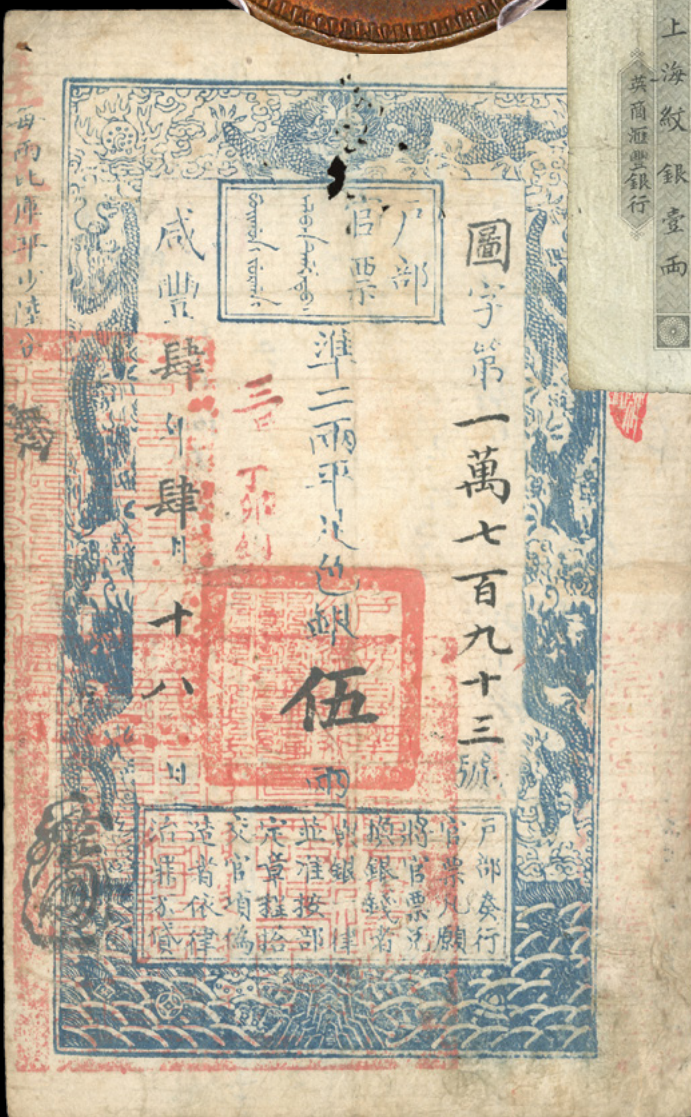 上海紋銀壹兩
英商滙豐銀行
戶部
官票
圖字第一萬七百九十三號
準二兩平足色銀伍兩
咸豐肆年肆月十八日
每兩比庫平少陸分
戶部奏行
官票凡願
將官票兌
換銀錢者
與銀一律
並准按部
定章程搭
交官項偽
造者依律
治罪不貸